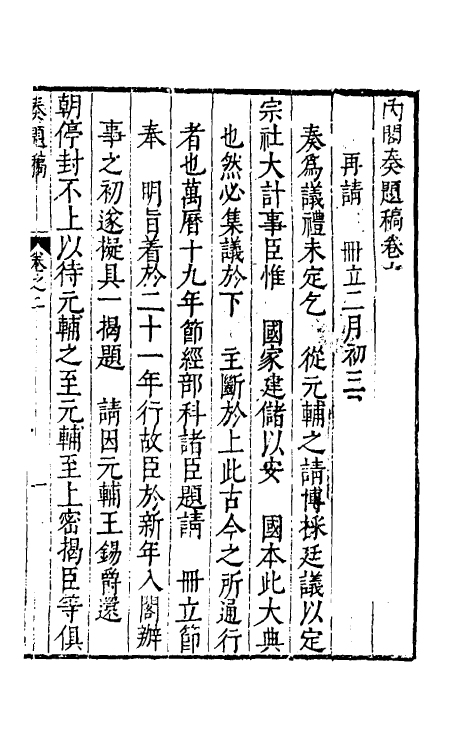 內閣奏題稿卷
再請　冊立二月初三
奏爲議禮未定乞　從元輔之請博採廷議以定
宗社大計事臣惟　國家建儲以安　國本此大典
也然必集議於下　主斷於上此古今之所通行
者也萬曆十九年節經部科諸臣題請　冊立節
奉　明旨着於二十一年行故臣於新年入閣辦
事之初遂擬具一揭題　請因元輔王錫爵還
朝停封不上以待元輔之至元輔至上密揭臣等俱
奏題稿　卷之二　一